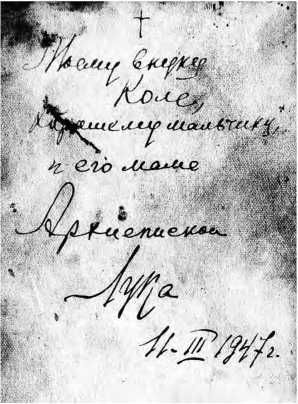 Моему внуку
Коле,
хорошему мальчику,
и его маме
Архиепископ
Лука
11-III 1947г.